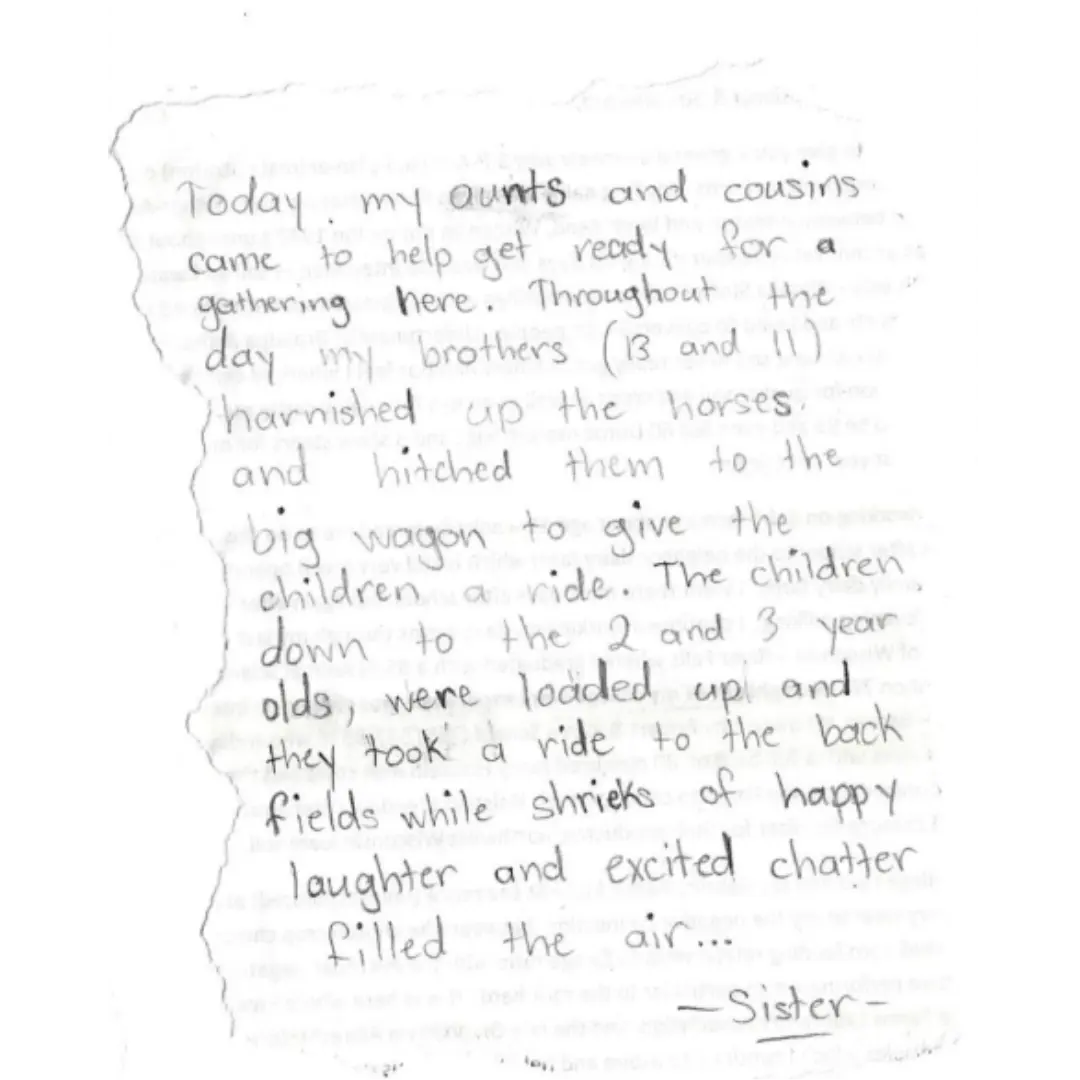 Today my aunts and cousins
came to help get ready for a
gathering here. Throughout the
day my brothers (13 and 11)
harnished up the horses.
and hitched them to the
big wagon to give the
children a ride. The children
down to the 2 and 3 year
olds, were loaded up, and
they took a ride to the back
fields while shrieks of happy
laughter and excited chatter
filled the air...
- Sister -